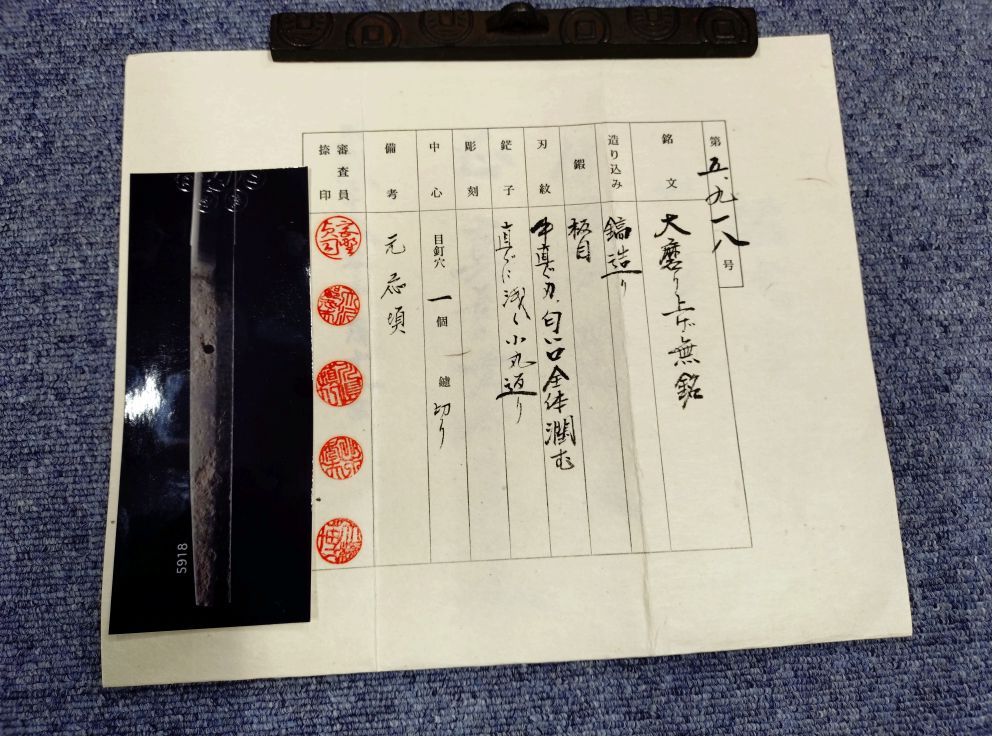 第五、九一八号
銘文 大磨り上げ無銘
造り込み 鎬造り
鍜 板目
刃紋 中直ぐ刃、匂い口全体潤む
鋩子 直ぐに浅く小丸返り
彫刻
中心 目釘穴 一個 鑢 切り
備考 元応頃
審査員
捺印
5918